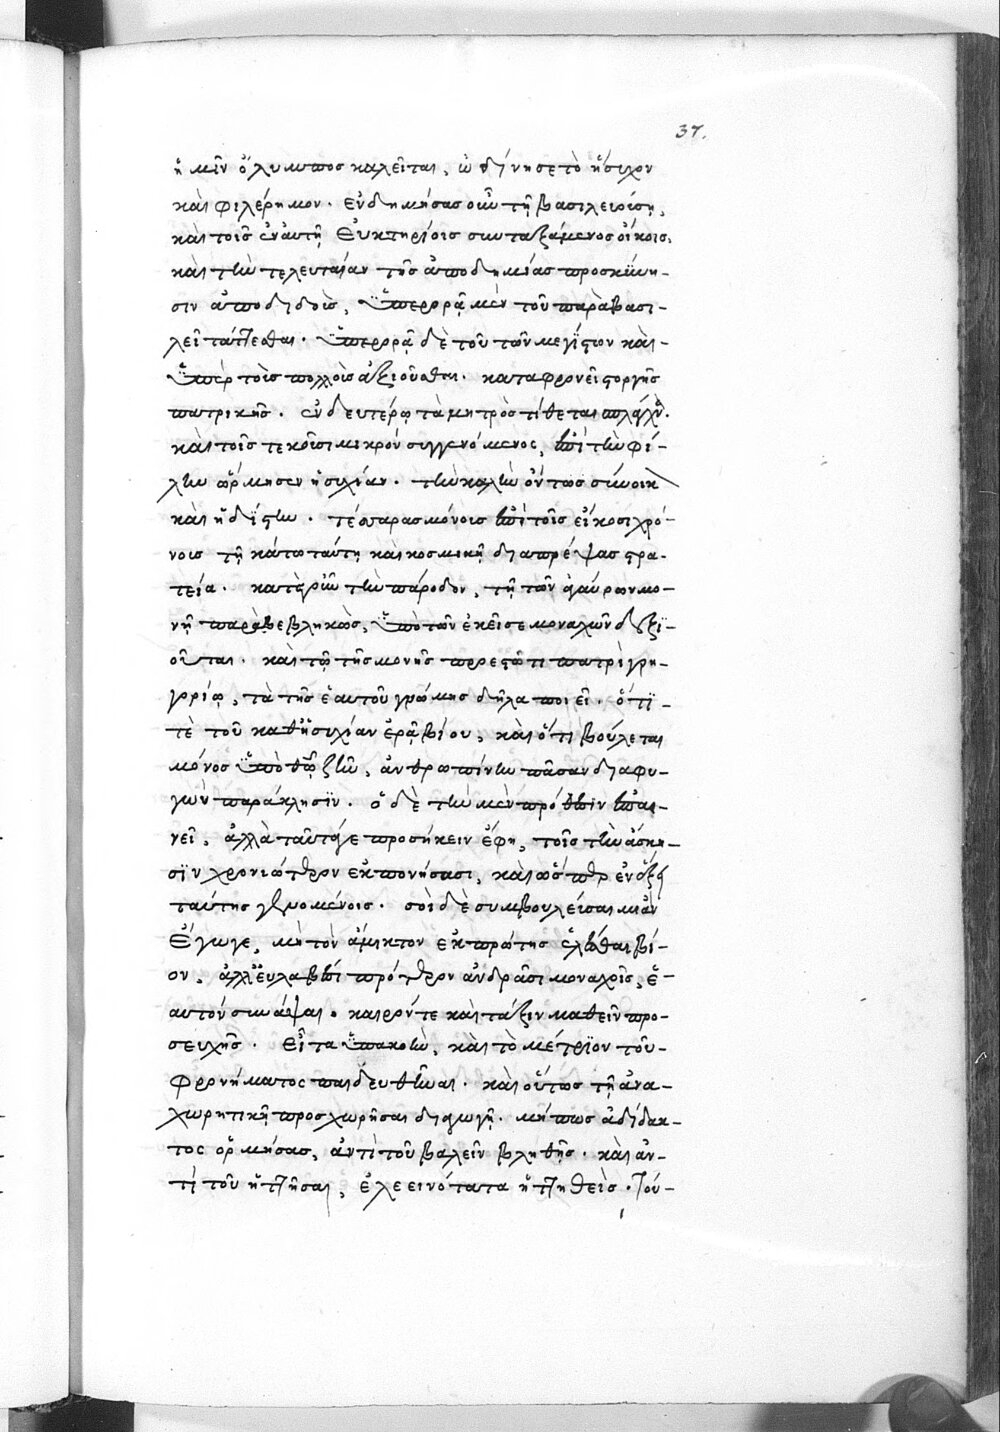 37.
ἢ μὲν ὄλυμπος καλεῖται, ὠδίνησε τὸ ἥσυχον
καὶ φιλέρημον. ἐνδημήσας οὖν τῇ βασιλευούσῃ,
καὶ τοῖς ἐν αὐτῇ εὐκτηρίοις συνταξάμενος οἴκοις,
καὶ τὴν τελευταίαν τῆς ἀποδημίας προσκύνη-
σιν ἀποδιδοὺς, ὑπερορᾷ μὲν τοῦ παρὰ βασι-
λεῖ τάττεσθαι. ὑπερορᾷ δὲ τοῦ τῶν μεγίστων καὶ
ὑπὲρ τοὺς πολλοὺς ἀξιοῦσθαι. καταφρονεῖ στοργῆς
πατρικῆς. ἐν δευτέρῳ τὰ μητρὸς τίθεται σπλάγχνα.
καὶ τοῖς τεκοῦσι μικρὸν συγγενόμενος, ἐπὶ τὴν φί-
λην ὥρμησεν ἡσυχίαν. τὴν καλὴν ὄντως σύνοικον
καὶ ἡδίστην. τέσσαρας μόνοις ἐπὶ τοῖς εἴκοσι χρό-
νοις τῇ κάτω ταύτῃ καὶ κοσμικῇ διαπρέψας στρα-
τείᾳ. κατὰ γοῦν τὴν πάροδον, τῇ τῶν ἀγαύρων μο-
νῇ παραβεβληκὼς, ὑπὸ τῶν ἐκεῖσε μοναχῶν δεξι-
οῦται. καὶ τῷ τῆς μονῆς προεστῶτι πατρὶ γρη-
γορίῳ, τὰ τῆς ἑαυτοῦ γνώμης δῆλα ποιεῖ. ὅτι-
τὲ τοῦ καθ' ἡσυχίαν ἐρᾷ βίου, καὶ ὅτι βούλεται
μόνος ὑπὸ θεῷ ζῆν, ἀνθρωπίνην πᾶσαν διαφυ-
γὼν παράκλησιν. ὁ δὲ τὴν μὲν πρόθεσιν ἐπαι-
νεῖ. ἀλλὰ ταῦτά γε προσήκειν ἔφη, τοῖς τὴν ἄσκη-
σιν χρονιώτερον ἐκπονήσασι, καὶ ὥσπερ ἐν ἕξει
ταύτης γενομένοις. σοὶ δὲ συμβουλεύσαιμι ἂν
ἔγωγε, μὴ τὸν ἄμικτον ἐκ πρώτης ἑλέσθαι βί-
ον, ἀλλ' εὐλαβέσι πρότερον ἀνδράσι μοναχοῖς, ἑ-
αυτὸν συνάψαι. καιρόν τε καὶ τάξιν μαθεῖν προ-
σευχῆς. εἶτα ὑπακοὴν, καὶ τὸ μέτριον τοῦ
φρονήματος παιδευθῆναι. καὶ οὕτως τῇ ἀνα-
χωρητικῇ προσχωρῆσαι διαγωγῇ. μήπως ἀδίδακ-
τος ὁρμήσας, ἀντὶ τοῦ βαλεῖν βληθῇς. καὶ ἀν-
τὶ τοῦ ἡττῆσαι, ἐλεεινότατα ἡττηθείς. τού-